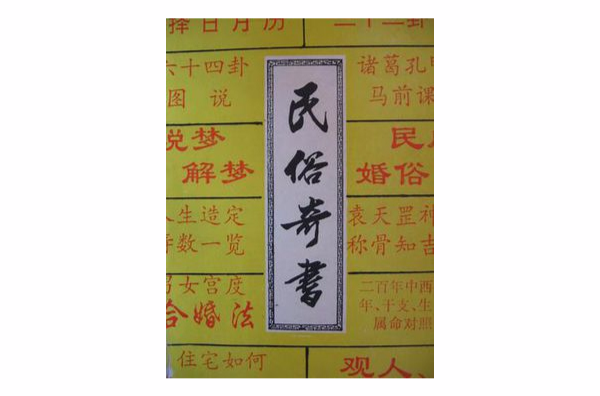 择日月历
二十二卦
六十四卦
图 说
诸葛孔
马前课
民俗奇书
说梦
解梦
民
婚俗
人生造定
数一览
袁天罡神
称骨知吉
男女宫度
合婚法
二百年中西
年、干支、生
属命对照
住宅如何
观人、